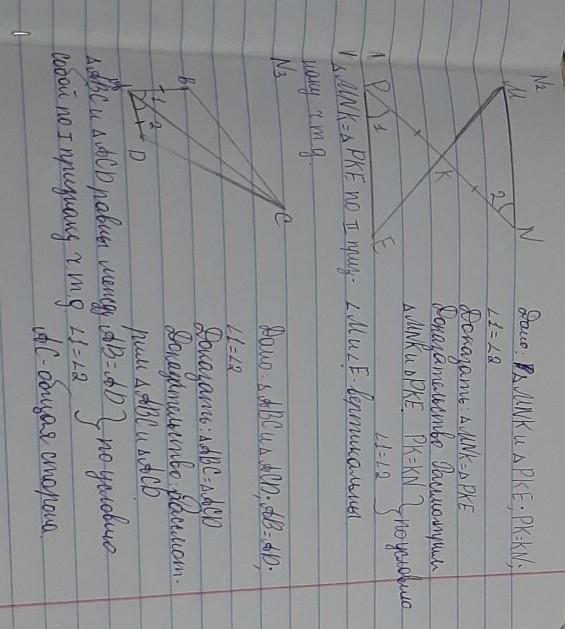 N2
M
N
2
K
1
P
E
Дано: ΔMNK и ΔPKE; PK=KN;
∠1=∠2
Доказать: ΔMNK=ΔPKE
Доказательство: Рассмотрим
ΔMNK и ΔPKE. PK=KN } по условию
∠1=∠2
∠M и ∠E - вертикальны
ΔMNK=ΔPKE по II приз-
наку ч.т.д.
N3
B
C
1
2
D
Дано: ΔABC и ΔACD; AB=AD;
∠1=∠2
Доказать: ΔABC=ΔACD
Доказательство: Рассмот-
рим ΔABC и ΔACD
AB=AD } по условию
∠1=∠2
AC - общая сторона
ΔABC и ΔACD равны между
собой по I признаку ч.т.д.